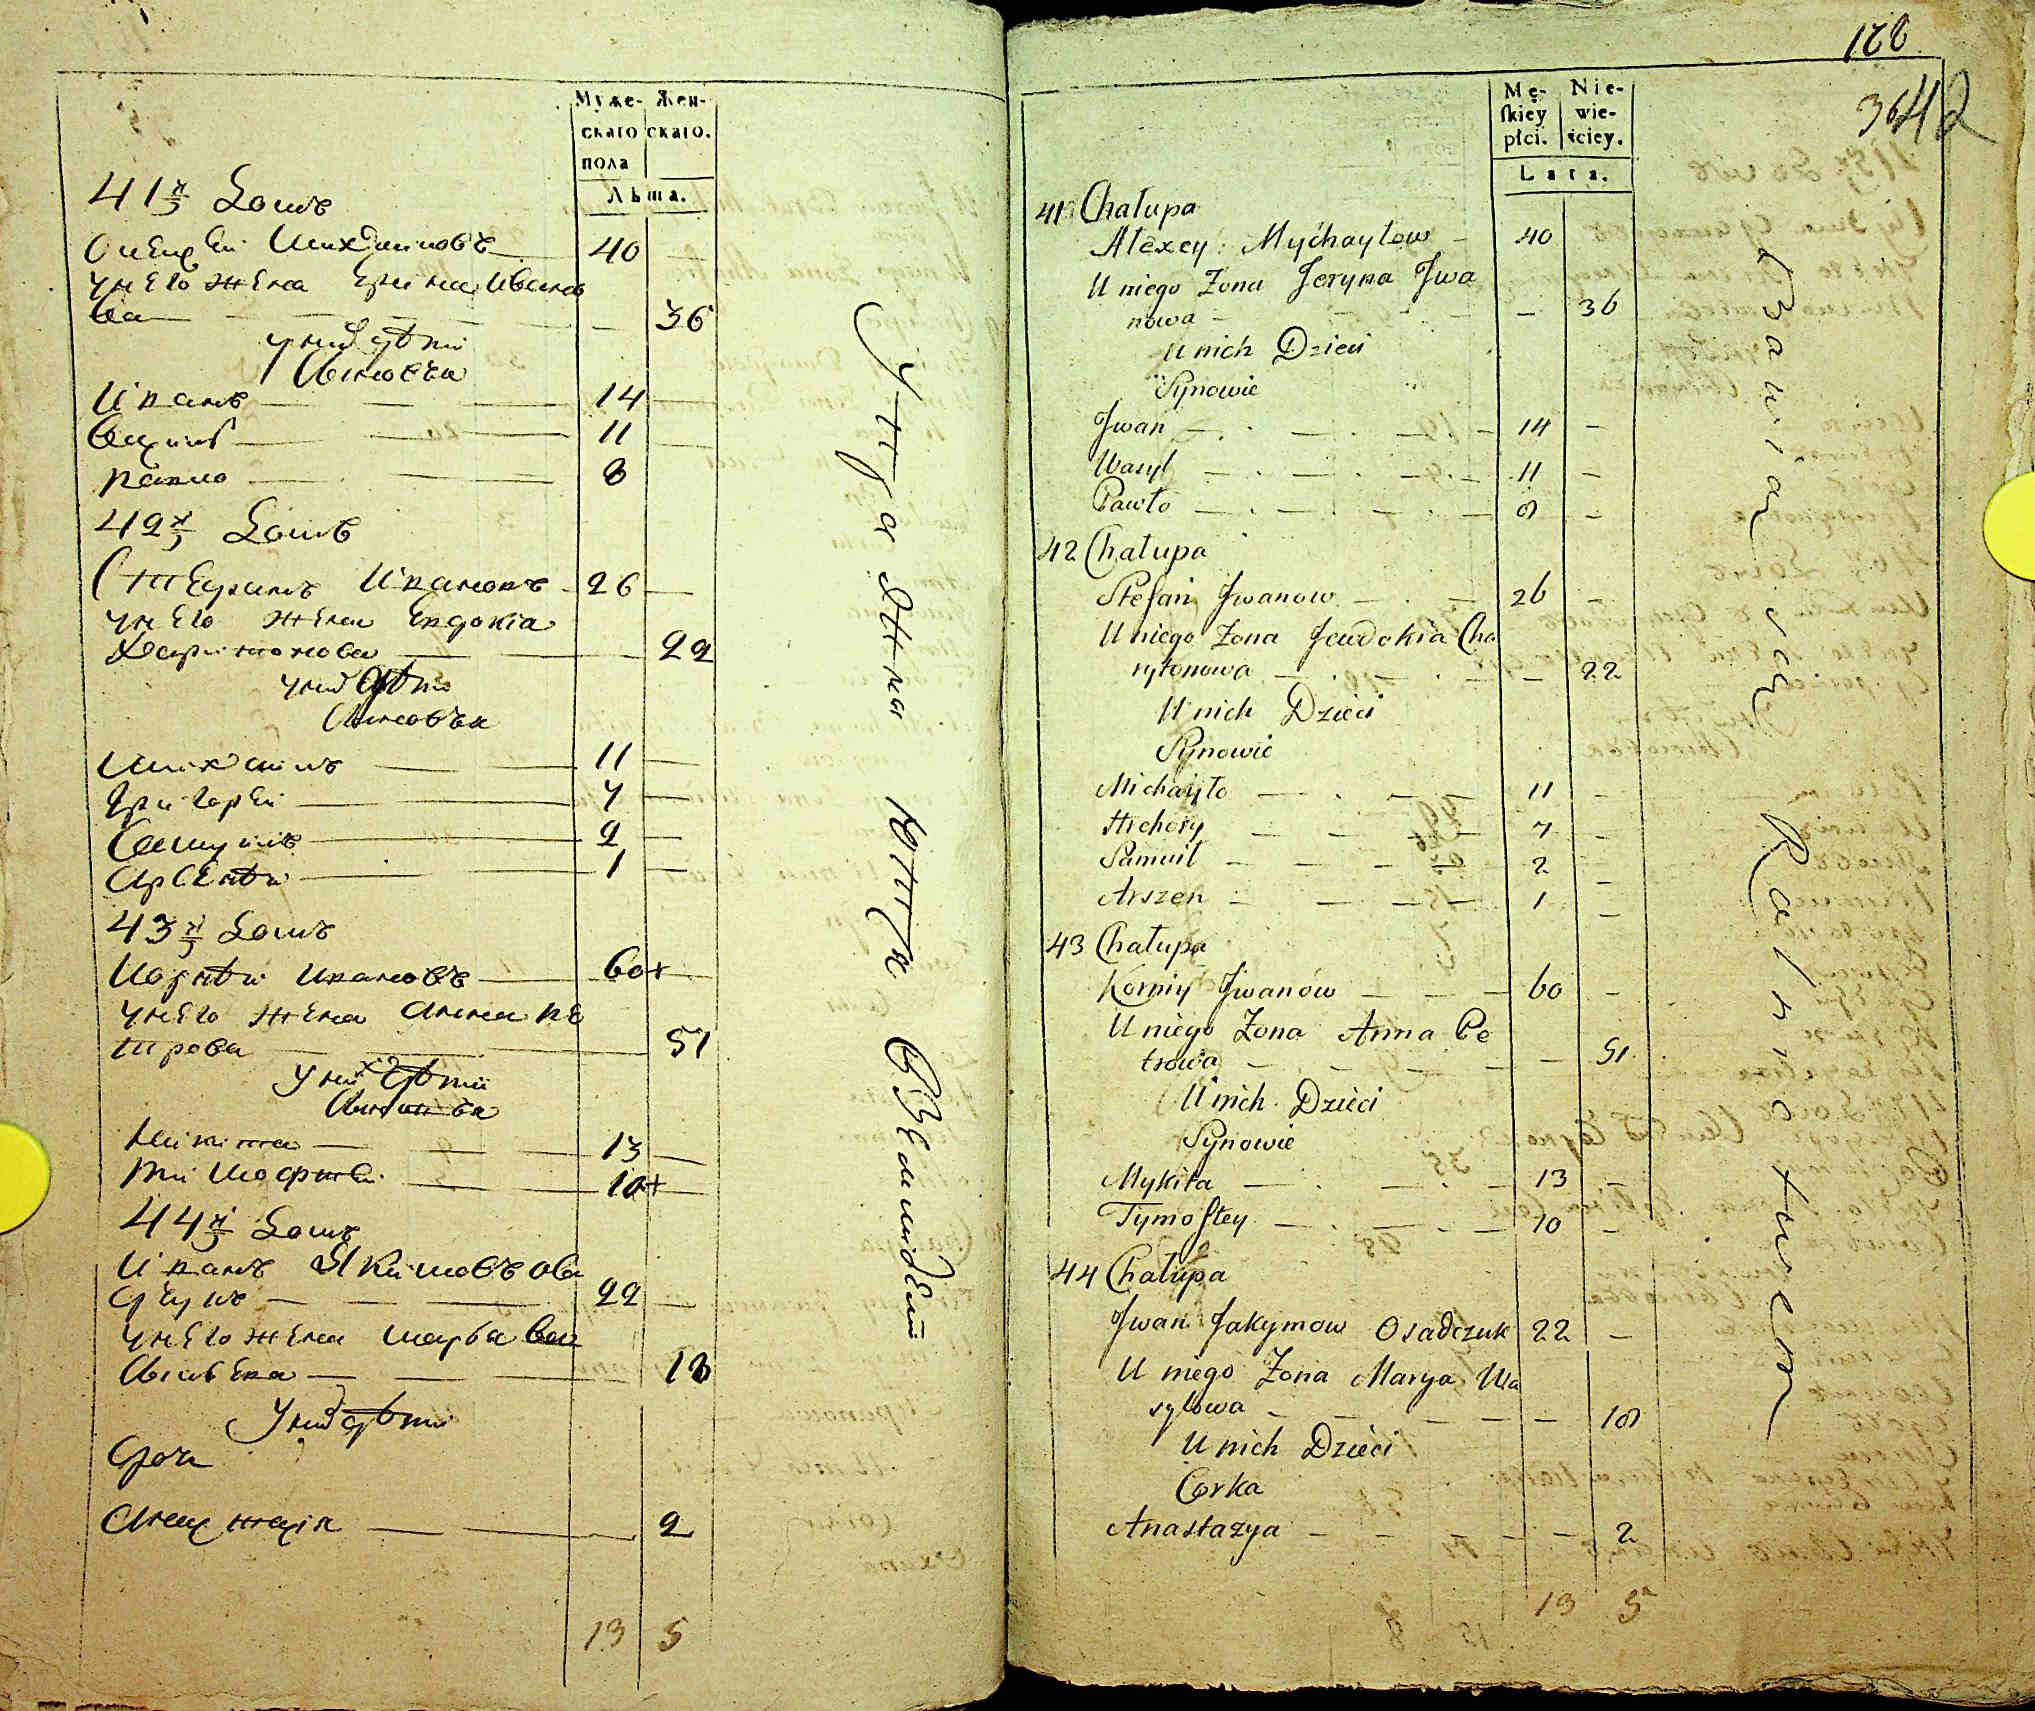 Муже- Жен-
скаго скаго.
пола
Лѣта.
41й Домъ
Алексѣй Михайловъ 40 —
у него жена Ерина Ивано
ва — 36
у нихъ дѣти
Сыновья
Иванъ — 14 —
Василь — 11 —
Павло — 8
42й Домъ
Стефанъ Ивановъ — 26 —
у него жена Евдокія
Харитонова — 22
у нихъ дѣти
Сыновья
Михайло — 11 —
Григорей — 7 —
Самуилъ — 2 —
Арсентій — 1 —
43й Домъ
Корнѣй Ивановъ — 60+ —
у него жена Анна Пе
трова — 51
у нихъ дѣти
Сыновья
Никита — 13 —
Тимофтей — 10+ —
44й Домъ
Иванъ Якимовъ Оса
дчукъ — 22 —
у него жена Марья Ва
сильева — 18
у нихъ дѣти
Дочь
Анастасія — 2
13 5
Унтд Дяка
122
3642
Mę- Nie-
skiey wie-
płci. ściey.
Lata.
41 Chałupa
Alexey Mychayłow — 40
U niego Zona Jeryna Jwa
nowa — — 36
U nich Dzieci
Synowie
Jwan — 14 —
Wasyl — 11 —
Pawło — 8 —
42 Chałupa
Stefan Jwanow — 26 —
U niego Zona Jewdokia Cha
rytonowa — — 22
U nich Dzieci
Synowie
Michayło — 11 —
Hrehory — 7 —
Samuil — 2 —
Arszen — 1 —
43 Chałupa
Korniy Jwanów — 60 —
U niego Zona Anna Pe
trowa — — 51
U nich Dzieci
Synowie
Mykita — 13 —
Tymoftey — 10 —
44 Chałupa
Jwan Jakymow Osadczuk 22 —
U niego Zona Marya Wa
sylowa — — 18
U nich Dzieci
Corka
Anastazya — — 2
13 5